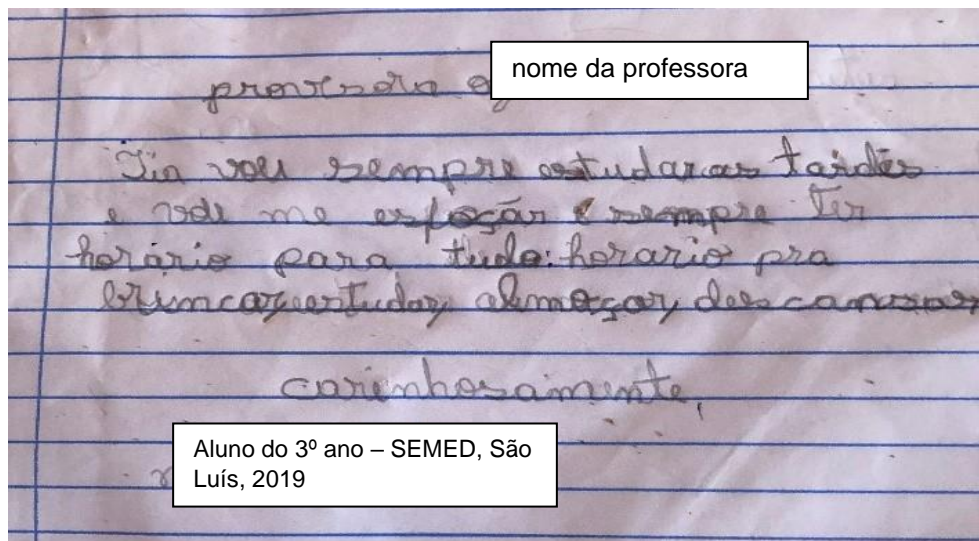 nome da professora
provesora
Tia vou sempre estudar as tardes
e vou me esfoçar e sempre ter
horário para tudo: horario pra
brimcar, estudar, almoçar, descansar
carinhosamente,
Aluno do 3º ano – SEMED, São
Luís, 2019